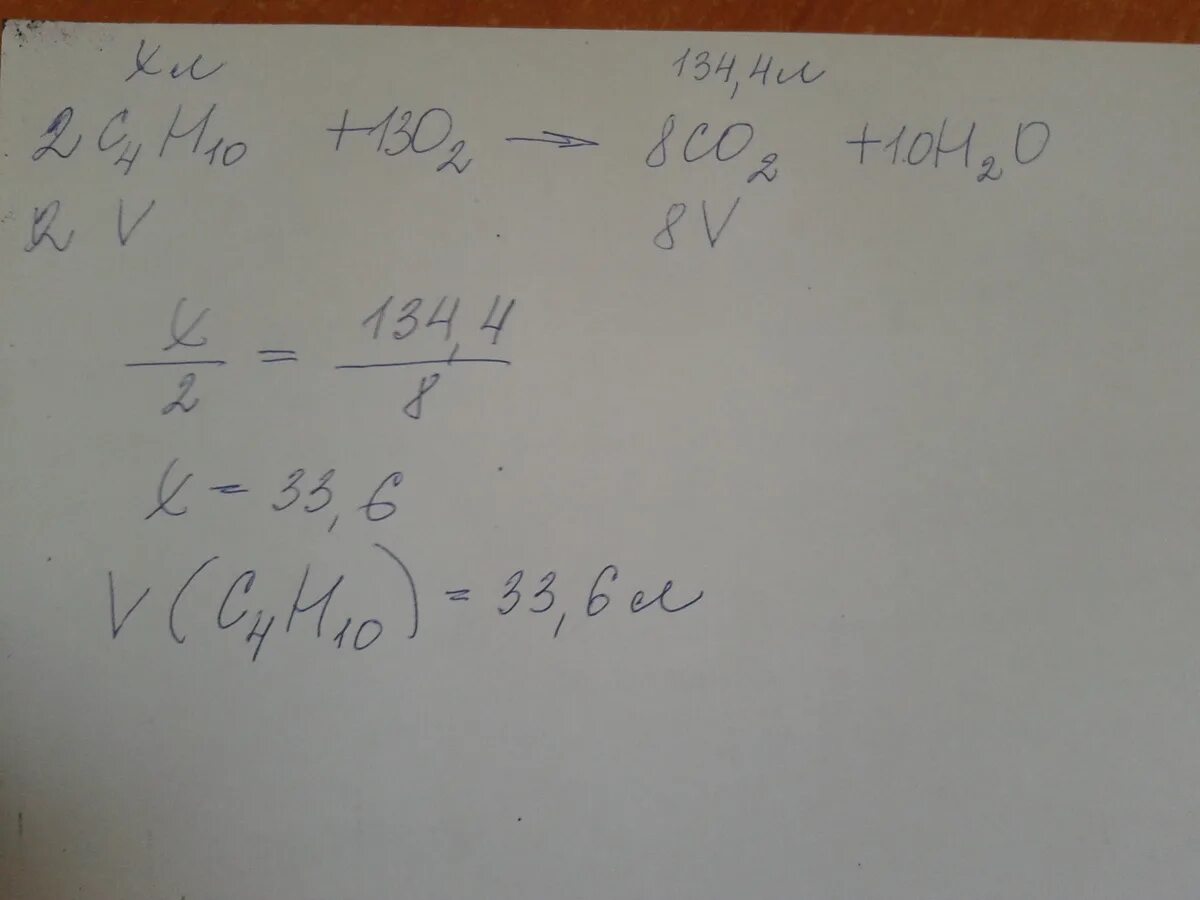 x л 134,4 л
2C₄H₁₀ +13O₂ → 8CO₂ +10H₂O
2 V 8V
x/2 = 134,4/8
x = 33,6
V(C₄H₁₀) = 33,6 л